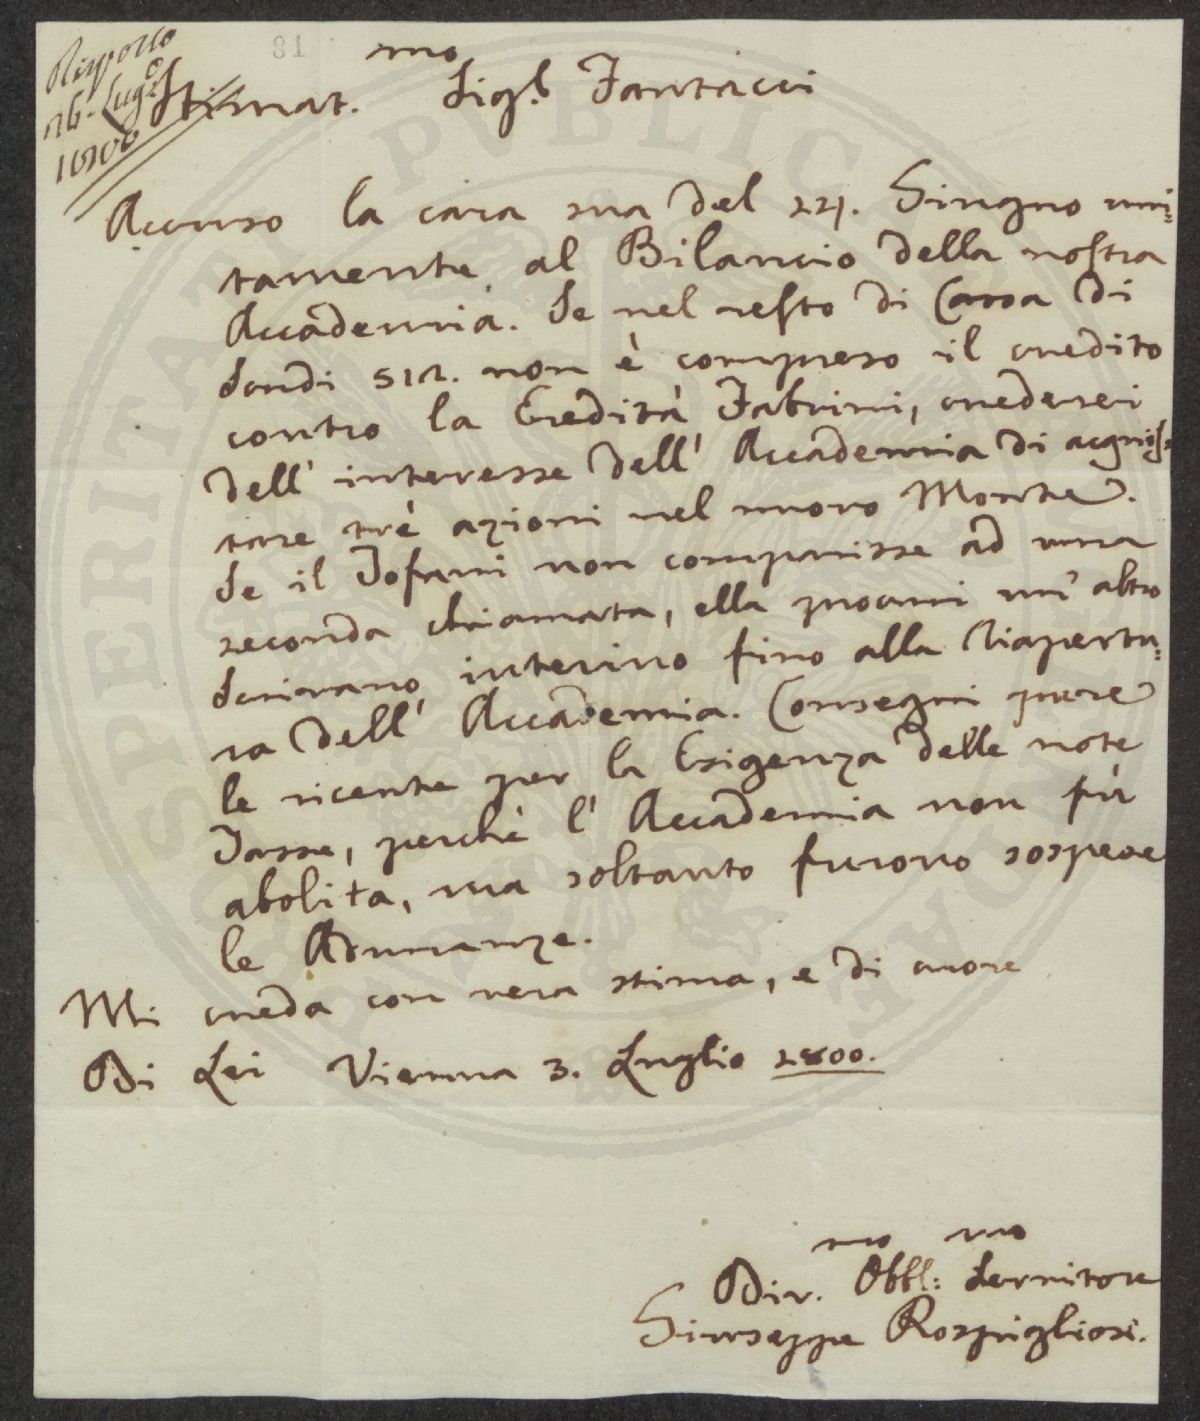 Risposto
16. Lug.o
1800
81
Stimat.mo Sig.r Fantacci
Accuso la cara sua del 24. Giugno uni=
tamente al Bilancio della nostra
Accademia. Se nel resto di Cassa di
Scudi 512. non è compreso il credito
contro la Eredità Fabrini, crederei
dell' interesse dell' Accademia di acquis=
tare trè azioni nel nuovo Monte.
Se il Tofani non comparisse ad una
seconda chiamata, ella procuri un' altro
Scrivano interino fino alla Riapertu=
ra dell' Accademia. Consegni pure
le ricevute per la Esigenza delle note
Tasse, perchè l' Accademia non fù
abolita, ma soltanto furono sospese
le Adunanze.
Mi creda con vera stima, e di cuore
Di Lei Vienna 3. Luglio 1800.
Div.mo Obbl:mo Servitore
Giuseppe Rospigliosi.